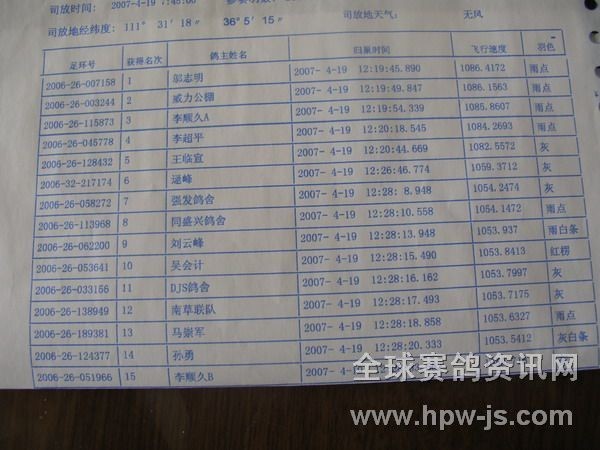 司放时间: 2007-4-19 7:45:00
司放地经纬度: 111° 31′ 18″ 36° 5′ 15″ 司放地天气: 无风
足环号 获得名次 鸽主姓名 归巢时间 飞行速度 羽色
2006-26-007158 1 邬志明 2007- 4-19 12:19:45.890 1086.4172 雨点
2006-26-003244 2 威力公棚 2007- 4-19 12:19:49.847 1086.1563 雨点
2006-26-115873 3 李顺久A 2007- 4-19 12:19:54.339 1085.8607 雨点
2006-26-045778 4 李超平 2007- 4-19 12:20:18.545 1084.2693 雨点
2006-26-128432 5 王临宣 2007- 4-19 12:20:44.669 1082.5572 灰
2006-32-217174 6 逯峰 2007- 4-19 12:26:46.774 1059.3712 灰
2006-26-058272 7 强发鸽舍 2007- 4-19 12:28: 8.948 1054.2474 灰
2006-26-113968 8 同盛兴鸽舍 2007- 4-19 12:28:10.558 1054.1472 雨点
2006-26-062200 9 刘云峰 2007- 4-19 12:28:13.948 1053.937 雨白条
2006-26-053641 10 吴会计 2007- 4-19 12:28:15.490 1053.8413 红楞
2006-26-033156 11 DJS鸽舍 2007- 4-19 12:28:16.162 1053.7997 灰
2006-26-138949 12 南草联队 2007- 4-19 12:28:17.493 1053.7175 灰
2006-26-189381 13 马崇军 2007- 4-19 12:28:18.858 1053.6327 雨点
2006-26-124377 14 孙勇 2007- 4-19 12:28:20.333 1053.5412 灰白条
2006-26-051966 15 李顺久B 2007- 4-19
全球赛鸽资讯网
www.hpw-js.com